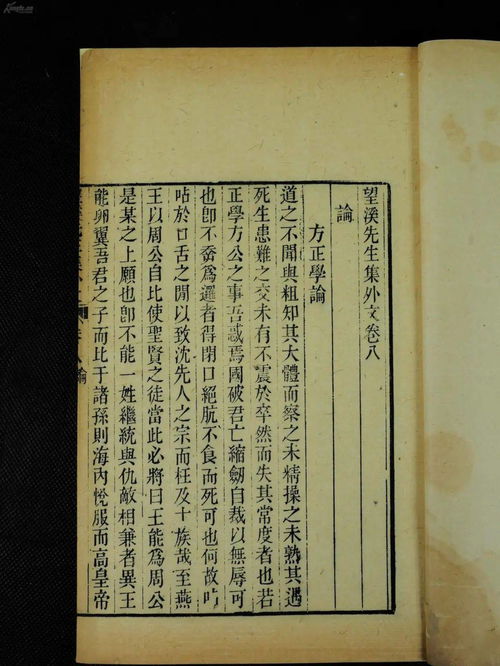 望溪先生集外文卷八
論
方正學論
道之不聞與粗知其大體而察之未精操之未熟其遇
死生患難之交未有不震於卒然而失其常度者也若
正學方公之事吾惑焉國破君亡縮劒自裁以無辱可
也卽不奮爲邏者得閉口絕肮不食而死可也何故呫
呫於口舌之閒以致沈先人之宗而枉及十族哉至燕
王以周公自比使聖賢之徒當此必將曰王能爲周公
是某之上願也卽不能一姓繼統與仇敵相兼者異王
能卵翼吾君之子而比于諸孫則海內悅服而高皇帝